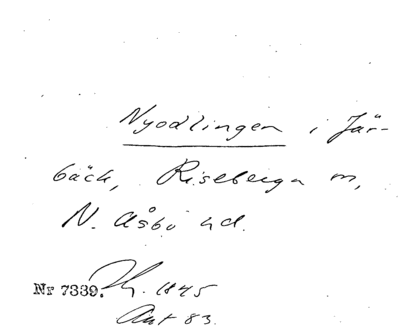 Nyodlingen i Jär-
bäck, Riseberga m,
N. Åsbo hd.
Nr 7339. 1845
Ant 83.